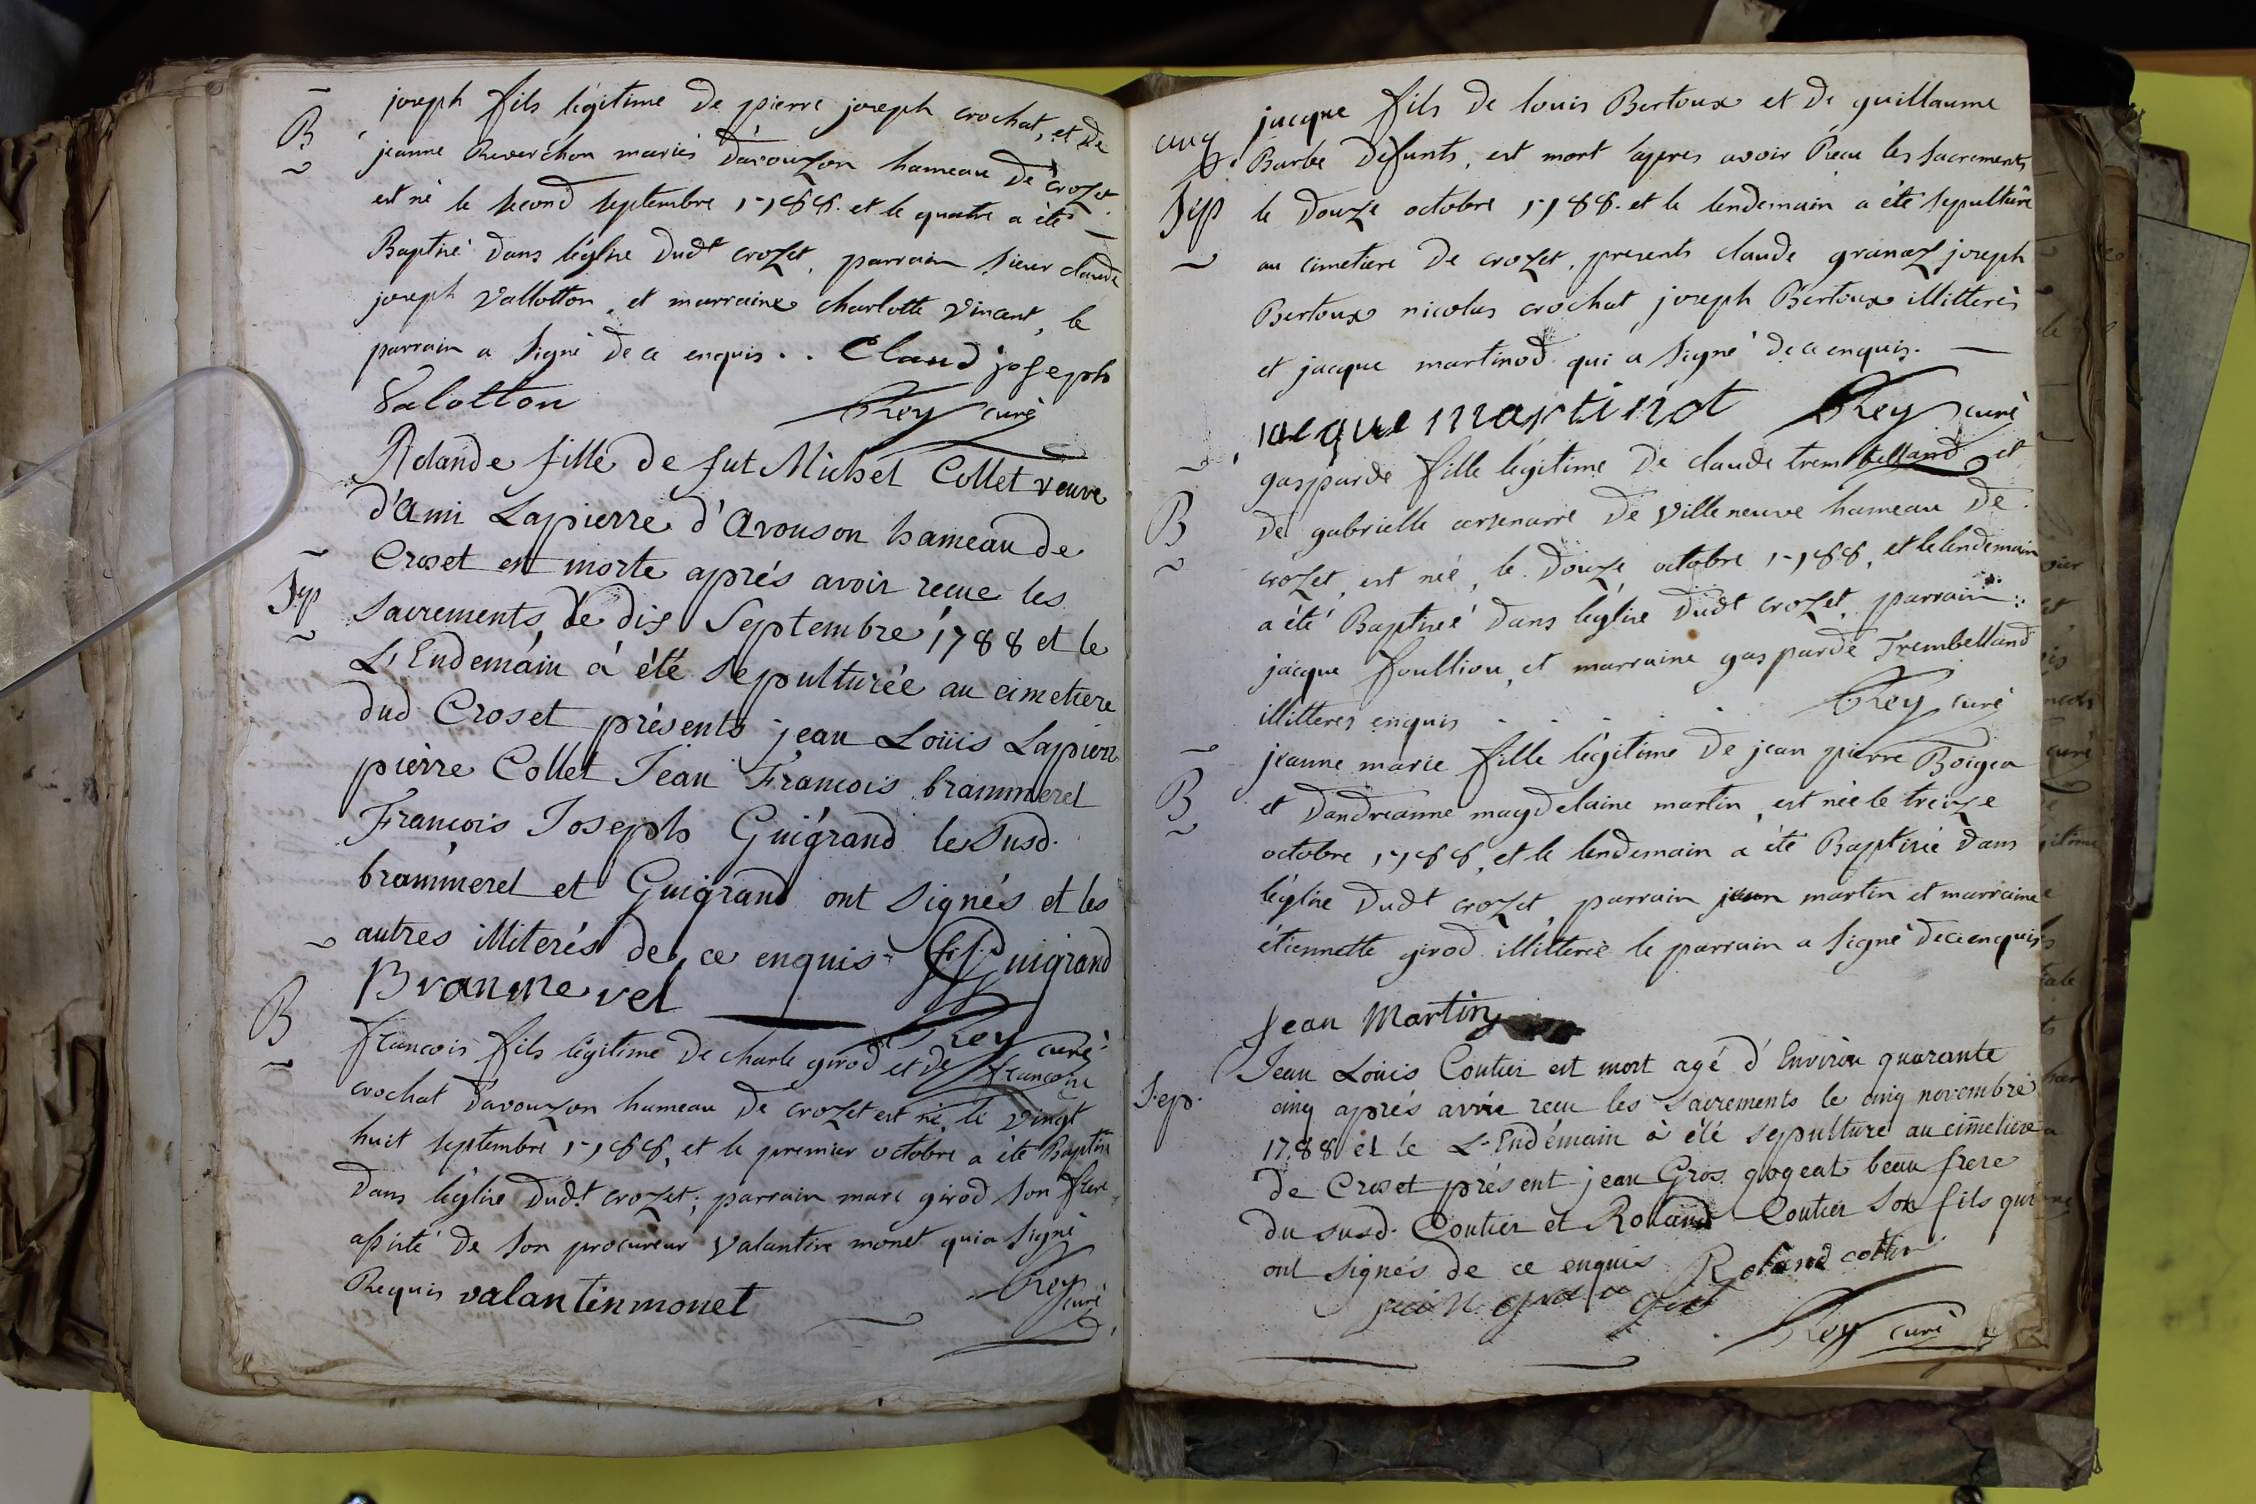 B
joseph fils légitime de pierre joseph crochat, et de
jeanne Reverchon mariés d'avouzon hameau de crozet.
est né le second septembre 1788. et le quatre a été
Baptisé dans léglise dudt crozet, parrain sieur claude
joseph Vallotton, et marraine charlotte Vincent, le
parrain a signé de ce enquis. . Claud joseph
Valotton Rey curé
Sep
Rolande fille de fut Michel Collet veuve
d'Ami Lapierre d'Avouson hameau de
Croset est morte aprés avoir recue les
Sacrements le dis Septembre 1788 et le
L'Endemain á été sepulturée au cimetiere
dud Croset présents jean Loüis Lapierre
pierre Collet Jean Francois brammerel
Francois Joseph Guigrand le susd.
brammerel et Guigrand ont signés et les
autres illiterés de ce enquis Guigrand
Brammerel Rey curé
B
francois fils légitime de charle girod et de francoise
crochat d'avouzon hameau de crozet est né, le vingt
huit septembre 1788, et le premier octobre a été Baptisé
dans léglise dudt crozet; parrain marc girod son frere
assisté de son procureur valantin monet qui a signé
Requis valantin monet Rey curé
cinq
Sep
jacque fils de louis Bertoux et de guillaume
Barbe défunts, est mort apres avoir Recu les sacrements
le douze octobre 1788. et le lendemain a été sepulturé
au cimetiere de crozet, presents claude granaz joseph
Bertoux nicolas crochat joseph Bertoux illitterés
et jacque martinod qui a signé de ce enquis.
jacque martinot Rey curé
B
gasparde fille légitime de claude trembelland et
de gabrielle de Villeneuve hameau de
crozet, est née, le douze octobre 1788, et le lendemain
a été Baptisée dans léglise dudt crozet, parrain
jacque foulliou, et marraine gasparde Trembelland
illitteres enquis Rey curé
B
jeanne marie fille légitime de jean pierre
et dandréanne magdelaine martin, est née le treize
octobre 1788, et le lendemain a été Baptisée dans
léglise dudt crozet, parrain jean martin et marraine
étiennette girod illitterée le parrain a signé de ce enquis
Jean Martin
Sep.
Jean Loüis Coutier est mort agé d'Environ quarante
cinq aprés avoir recu les Sacrements le cinq novembre
1788 et le L'Endémain á été sepulturé au cimetiere
de Croset présent jean Gros gogeat beau frere
du susd. Coutier et Roland Coutier son fils qui
ont signés de ce enquis Roland cottier
Rey curé